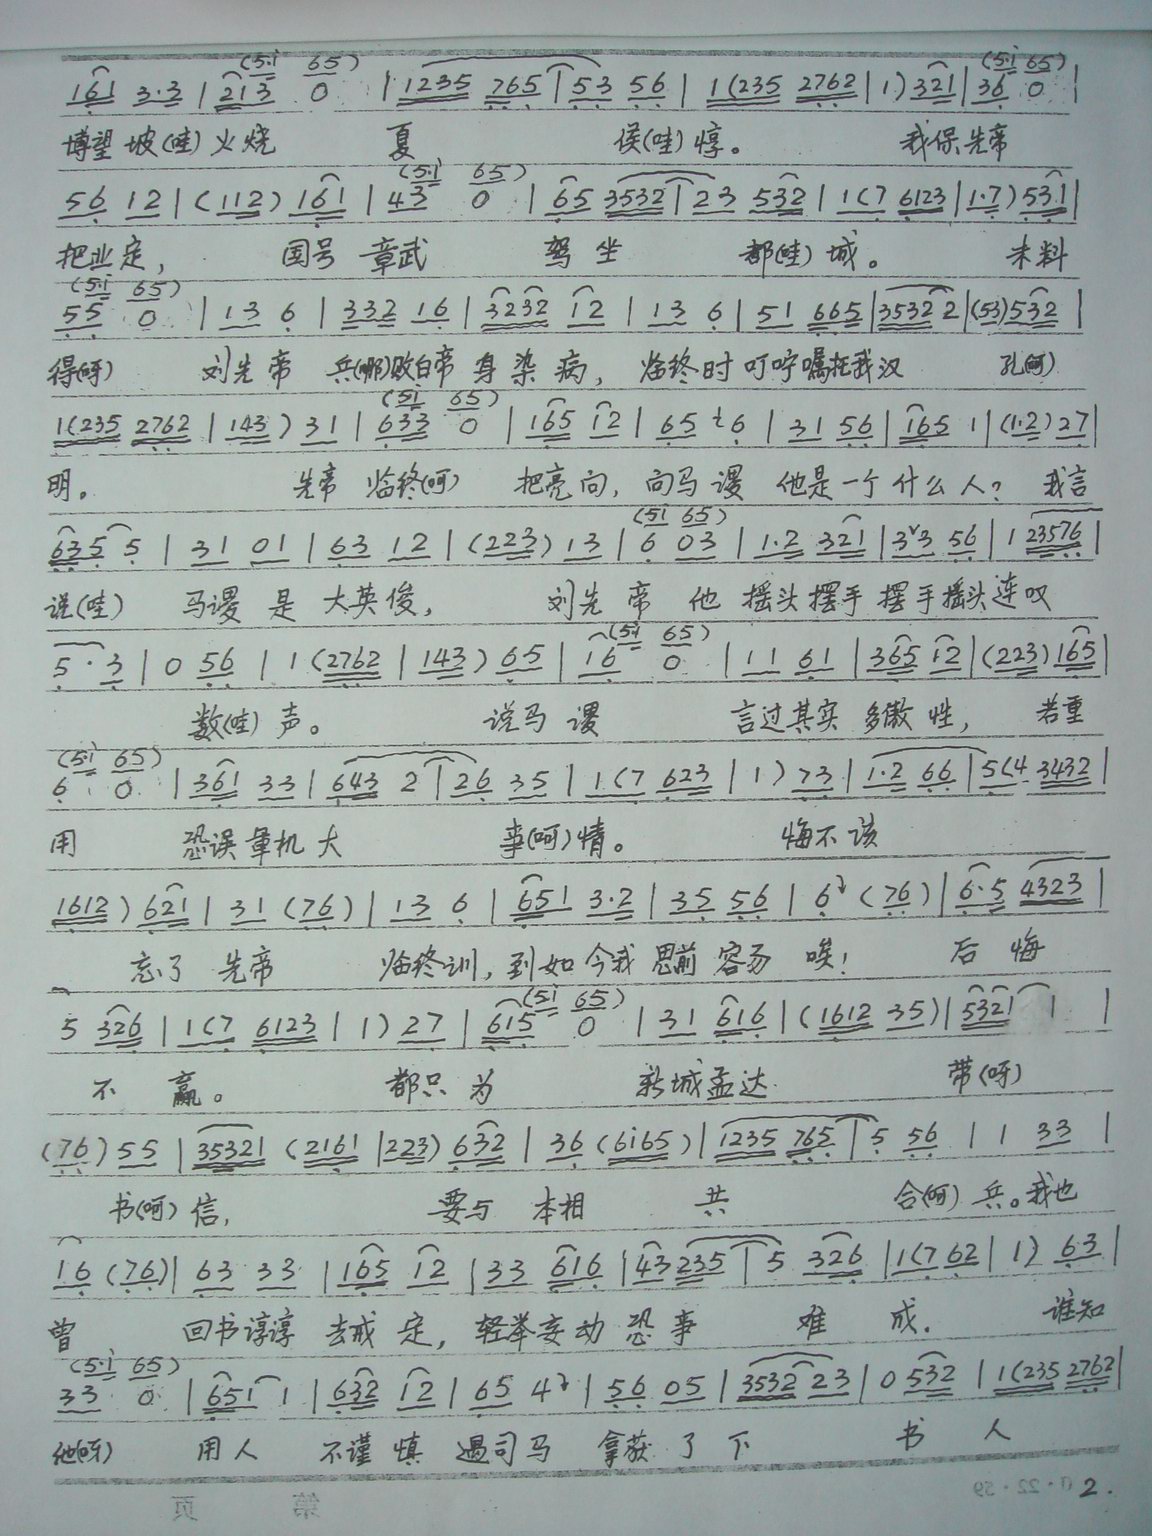 (5·i 65) (5·i 65)
161 3·3 | 213 0 | 1235 765 | 53 56 | 1(235 2762 | 1) 321 | 36 0 |
博望坡(哇)火烧 夏 侯(哇)惇。 我保先帝
(5·i 65)
56 12 | (112) 161 | 43 0 | 65 3532 | 23 532 | 1(7 6123 | 1·7) 531 |
把业定, 国号章武 驾坐 都(哇)城。 未料
(5·i 65)
55 0 | 13 6 | 332 16 | 3232 12 | 13 6 | 51 665 | 3532 2 | (53) 532 |
得(呀) 刘先帝 兵(那)败白帝身染病, 临终时叮咛嘱托我汉 孔(呵)
(5·i 65)
1(235 2762 | 143) 31 | 633 0 | 165 12 | 65 6 | 31 56 | 165 1 | (1·2) 27 |
明。 先帝临终(呵) 把亮问, 问马谡 他是一个什么人? 我言
(5i 65)
635 5 | 31 01 | 63 12 | (223) 13 | 6 03 | 1·2 321 | 3ˇ3 56 | 1 23576 |
说(哇) 马谡是大英俊, 刘先帝他摇头摆手摆手摇头连叹
(5·i 65)
5·3 | 0 56 | 1 (2762 | 143) 65 | 16 0 | 11 61 | 365 12 | (223) 165 |
数(哇)声。 说马谡 言过其实多傲性, 若重
(5·i 65)
6 0 | 361 33 | 643 2 | 26 35 | 1(7 623 | 1) 73 | 1·2 66 | 5(4 3432 |
用 恐误军机大 事(呵)情。 悔不该
1612) 621 | 31 (76) | 13 6 | 651 3·2 | 35 56 | 6 (76) | 6·5 4323 |
忘了先帝 临终训, 到如今我思前容易 唉! 后悔
(5i 65)
5 326 | 1(7 6123 | 1) 27 | 615 0 | 31 616 | (1612 35) | 5321 1 |
不赢。 都只为 新城孟达 带(呀)
(76) 55 | 35321 (2161 | 223) 632 | 36 (6i65) | 1235 765 | 5 56 | 1 33 |
书(呵)信, 要与本相 共 合(呵)兵。我也
16 (76) | 63 33 | 165 12 | 33 616 | 43 235 | 5 326 | 1(7 62 | 1) 63 |
曾 回书谆谆去戒定, 轻举妄动恐事 难成. 谁知
(5·i 65)
33 0 | 651 1 | 632 12 | 65 4 | 56 05 | 3532 23 | 0 532 | 1(235 2762 |
他(呀) 用人不谨慎 遇司马拿获了下 书人
2.